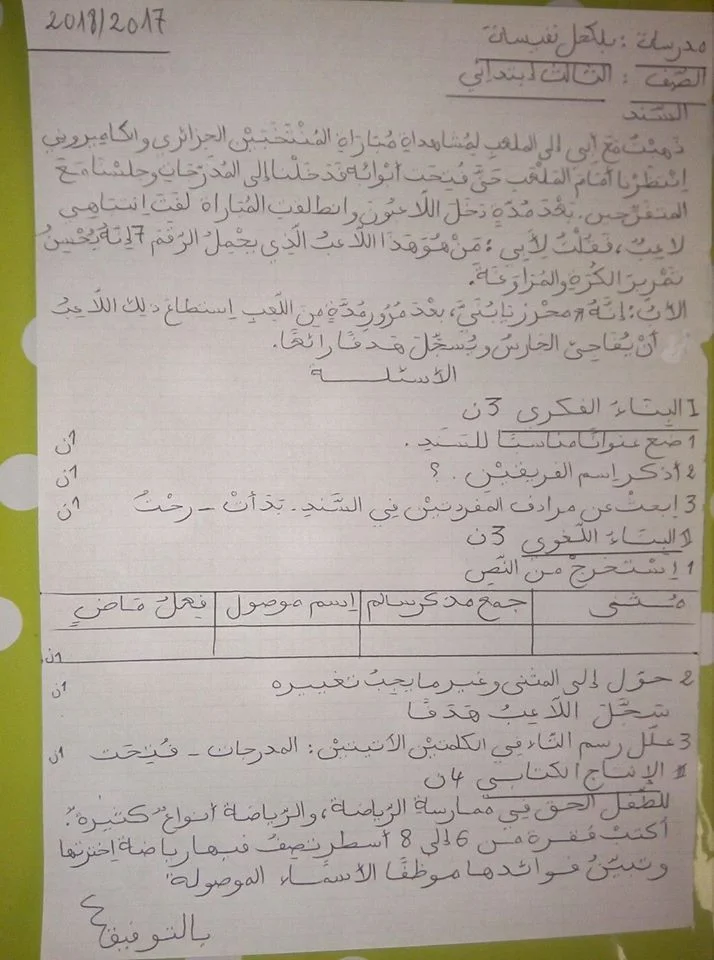 2018/2017
مدرسة : بلكحل نفيسة
الصّف : الثالث ابتدائي
السّند
ذهبتُ مَعَ أبي إلى الملعب لِمُشاهداةِ مُبَارَاةِ المُنْتَخَبَيْن الجزائري والكاميروني
اِنتظرنا أمَامَ المَلْعَب حَتَّى فُتِحَت أبْوَابُه فَدَخَلْنا إلى المُدَرَّجَات وجلسْنا مَعَ
المتفرّجين. بَعْدَ مُدّةٍ دَخَلَ اللّاعبُونَ وانطلقت المُبَاراة لَفَتَ اِنتباهي
لاعِبٌ، فَقُلْتُ لِأَبي : مَنْ هُوَ هَذَا اللّاعبُ الَّذِي يَحْمِلُ الرَّقْمَ 7 إنَّهُ يُحْسِنُ
تَمْرِيرَ الكُرَةِ والمُرَاوَغَة.
الأبُ : إنَّهُ محرز يَا بُنَيَّ، بعْدَ مُرُورِ مُدَّةٍ مِنَ اللّعِبِ اِستطَاعَ ذلِكَ اللّاعِبُ
أنْ يُفَاجِئَ الحَارسَ ويُسَجِّلَ هَدَفًا رائِعًا.
الأسئلـــة
I البِنَاءَ الفكري 3ن
1 ضَع عنوانًا مناسبًا للسَّنَدِ . 1ن
2 أذكر اِسم الفريقيْنِ . ؟ 1ن
3 اِبحثْ عن مرادف المفردتيْن فِي السَّندِ . بَدَأتْ - رحْتُ 1ن
II البنَاءَ اللّغوي 3ن
1 اِسْتخرجْ من النّصِ
مُـثنى | جمع مذكر سالم | اِسم موصول | فِعلُ مَاضٍ
1ن
2 حَوّل إلى المثنى وغير ما يجبُ تغييره 1ن
سَجَّلَ اللّاعبُ هَدَفًا
3 علّل رسم التّاءِ في الكلمتيْن الآتيتيْن : المدرجات - فُتِحَت 1ن
III الإنتاج الكتابي 4ن
للطِّفْلِ الحق في ممارسةِ الرّياضة، والرّياضة أنواعٌ كثيرة :
أكتبْ فقرة من 6 إلى 8 أسطر تصِفُ فيها رياضة اِخترتها
وتبيّنُ فوائدها موظّفًا الأسماء الموصولة
بالتوفيق